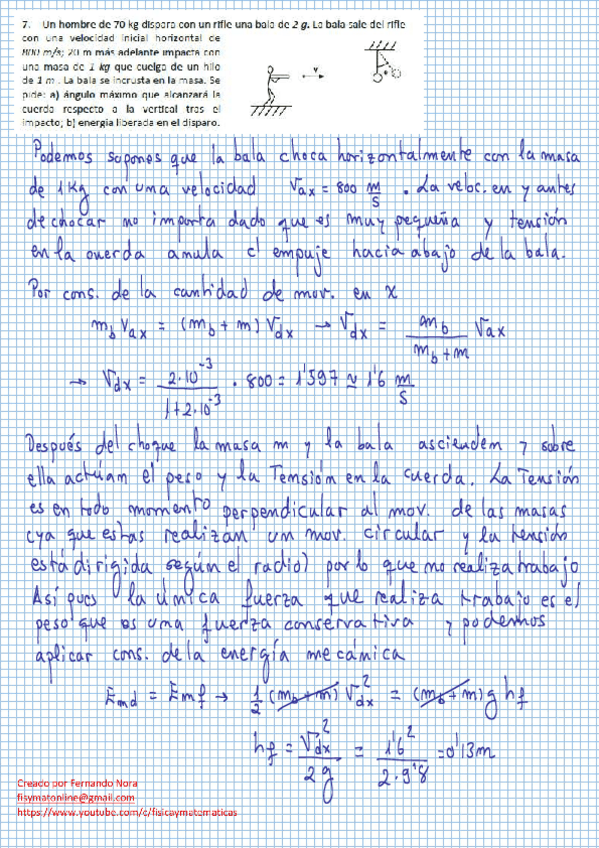 7. Un hombre de 70 kg dispara con un rifle una bala de 2 g. La bala sale del rifle
con una velocidad inicial horizontal de
800 m/s; 20 m más adelante impacta con
una masa de 1 kg que cuelga de un hilo
de 1 m . La bala se incrusta en la masa. Se
pide: a) ángulo máximo que alcanzará la
cuerda respecto a la vertical tras el
impacto; b) energía liberada en el disparo.
v
Podemos suponer que la bala choca horizontalmente con la masa
de 1Kg con una velocidad Vax = 800 m/s . La veloc. en y antes
de chocar no importa dado que es muy pequeña y tensión
en la cuerda anula el empuje hacia abajo de la bala.
Por cons. de la cantidad de mov. en X
mb Vax = (mb + m) Vdx → Vdx = mb/(mb + m) Vax
→ Vdx = 2·10^-3/(1+2·10^-3) · 800 = 1'597 ≈ 1'6 m/s
Después del choque la masa m y la bala ascienden y sobre
ella actúan el peso y la Tensión en la cuerda. La Tensión
es en todo momento perpendicular al mov. de las masas
(ya que estas realizan un mov. circular y la tensión
está dirigida según el radio) por lo que no realiza trabajo
Así pues la única fuerza que realiza trabajo es el
peso que es una fuerza conservativa y podemos
aplicar cons. de la energía mecánica
Emd = Emf → 1/2 (mb + m) Vdx² = (mb + m) g hf
hf = Vdx²/2g = 1'6²/2·9'8 = 0'13m
Creado por Fernando Nora
fisymatonline@gmail.com
https://www.youtube.com/c/fisicaymatematicas